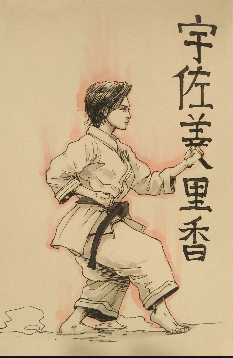 宇佐義里香